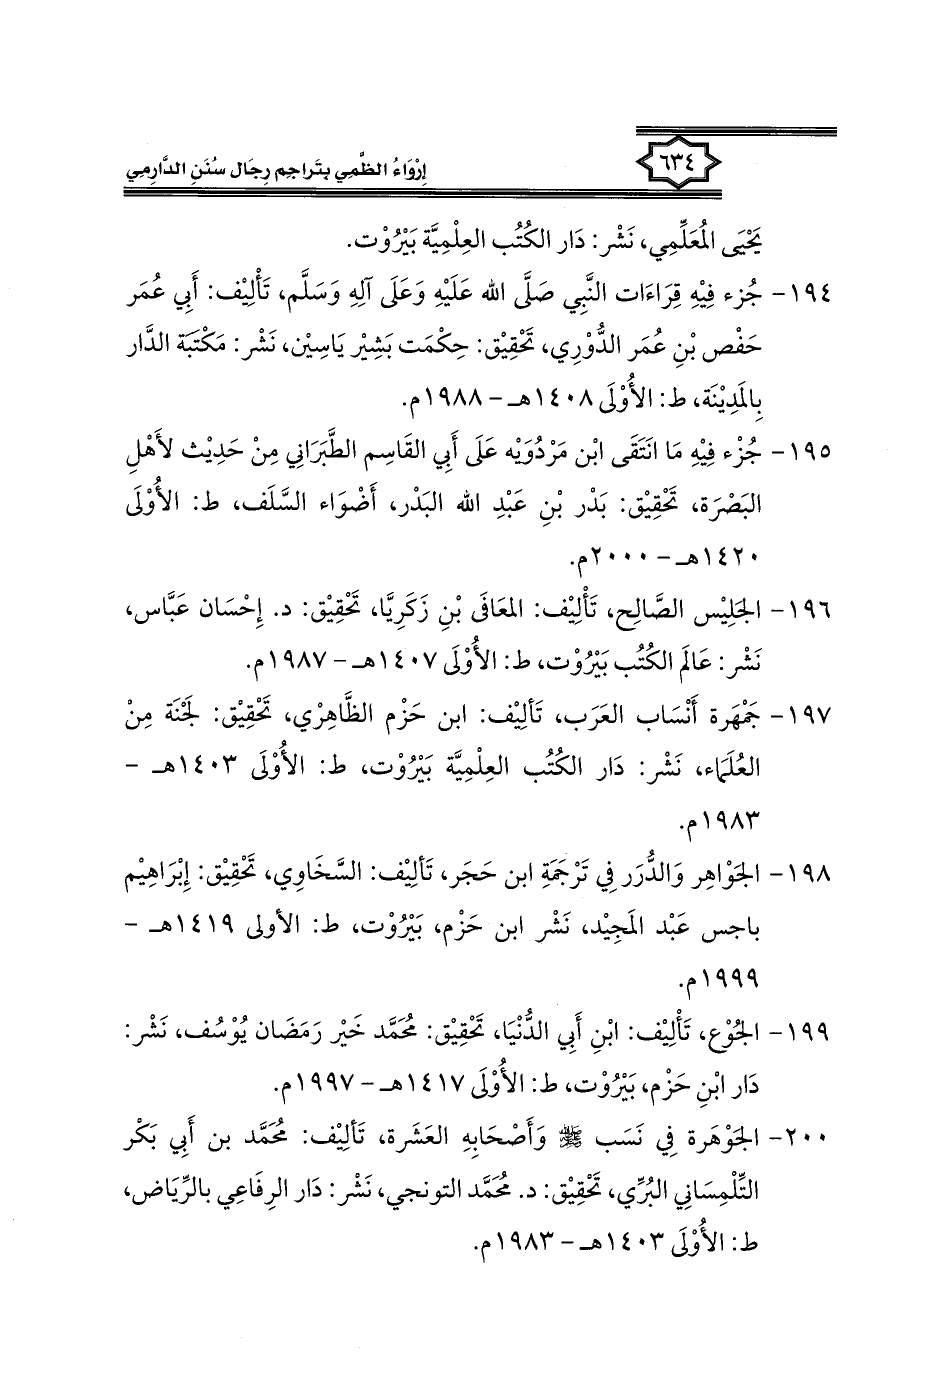 ٦٣٤
إِرْوَاءُ الظَّمِي بتَراجِم رِجَال سُنَنِ الدَّارِمِي
يَحْيَى المُعَلِّمِي، نَشْر: دَار الكُتُب العِلْمِيَّة بَيْرُوْت.
١٩٤- جُزء فِيْهِ قِرَاءَات النَّبِي صَلَّى الله عَلَيْهِ وَعَلَى آلِهِ وَسَلَّم، تَأْلِيْف: أَبِي عُمَر
حَفْص بْنِ عُمَر الدُّوْرِي، تَحْقِيْق: حِكْمَت بَشِيْر يَاسِيْن، نَشْر: مَكْتَبَة الدَّار
بِالمَدِيْنَة، ط: الأُوْلَى ١٤٠٨هـ - ١٩٨٨م.
١٩٥- جُزْء فِيْهِ مَا انَتَقَى ابْن مَرْدُوَيْه عَلَى أَبِي القَاسِم الطَّبَرَانِي مِنْ حَدِيْث لأَهْلِ
البَصْرَة، تَحْقِيْق: بَدْر بْنِ عَبْدِ الله البَدْر، أَضْوَاء السَّلَف، ط: الأُوْلَى
١٤٢٠هـ - ٢٠٠٠م.
١٩٦- الجَلِيْس الصَّالِح، تَأْلِيْف: المعَافَى بْنِ زَكَرِيَّا، تَحْقِيْق: د. إِحْسَان عَبَّاس،
نَشْر: عَالَم الكُتُب بَيْرُوْت، ط: الأُوْلَى ١٤٠٧هـ - ١٩٨٧م.
١٩٧- جَمْهَرة أَنْسَاب العَرَب، تَألِيْف: ابن حَزْم الظَّاهِرْي، تَحْقِيْق: لَجْنَة مِنْ
العُلَمَاء، نَشْر: دَار الكُتُب العِلْمِيَّة بَيْرُوْت، ط: الأُوْلَى ١٤٠٣هـ -
١٩٨٣م.
١٩٨- الجَوْاهِر وَالدُّرَر فِي تَرْجَمَةِ ابن حَجَر، تَألِيْف: السَّخَاوِي، تَحْقِيْق: إِبْرَاهِيْم
باجس عَبْد المَجِيْد، نَشْر ابن حَزْم، بَيْرُوْت، ط: الأولى ١٤١٩هـ -
١٩٩٩م.
١٩٩- الجُوْع، تَأْلِيْف: ابْنِ أَبِي الدُّنْيَا، تَحْقِيْق: مُحَمَّد خَيْر رَمَضَان يُوْسُف، نَشْر:
دَار ابْنِ حَزْم، بَيْرُوْت، ط: الأُوْلَى ١٤١٧هـ - ١٩٩٧م.
٢٠٠- الجَوْهَرة فِي نَسَب ﷺ وَأَصْحَابِهِ العَشَرة، تَألِيْف: مُحَمَّد بن أَبِي بَكْر
التِّلْمِسَاني البُرِّي، تَحْقِيْق: د. مُحَمَّد التونجي، نَشْر: دَار الرِفَاعِي بالرِّيَاض،
ط: الأُوْلَى ١٤٠٣هـ - ١٩٨٣م.